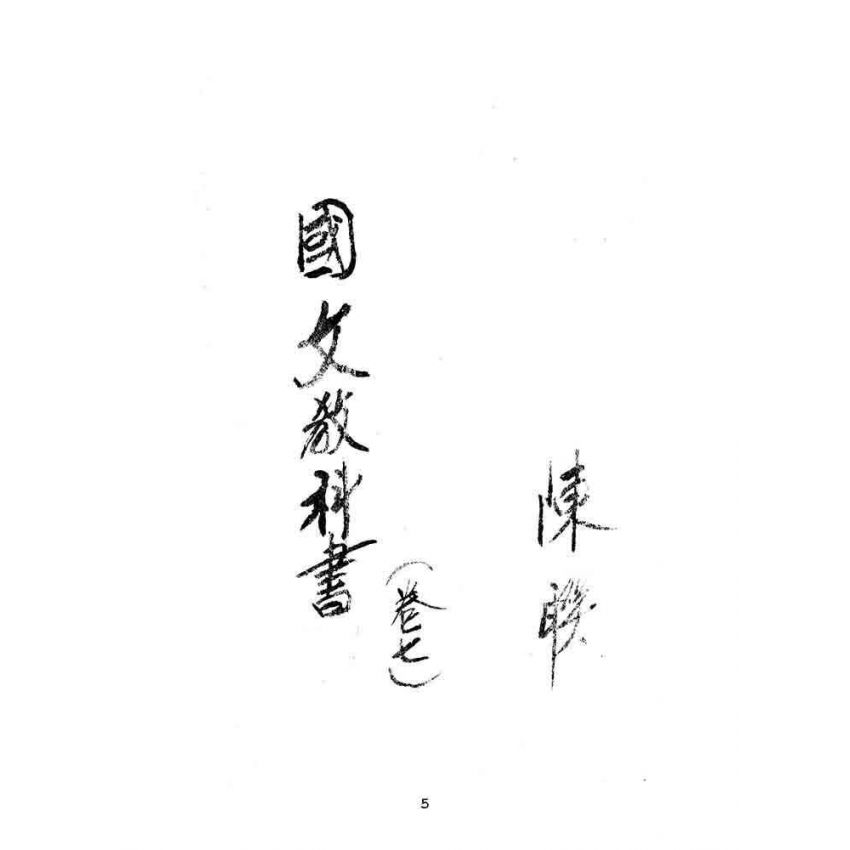 陳聯
國文教科書
(卷七)
5